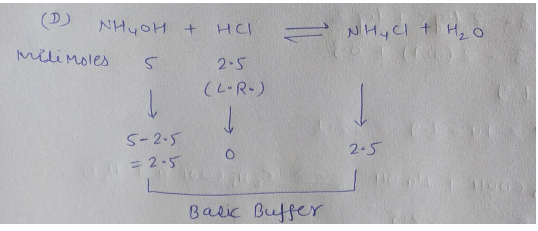 (D) NH4OH + HCl ⇌ NH4Cl + H2O
Milimoles 5 2.5
(L.R.)
↓ ↓ ↓
5-2.5 0 2.5
= 2.5
Basic Buffer